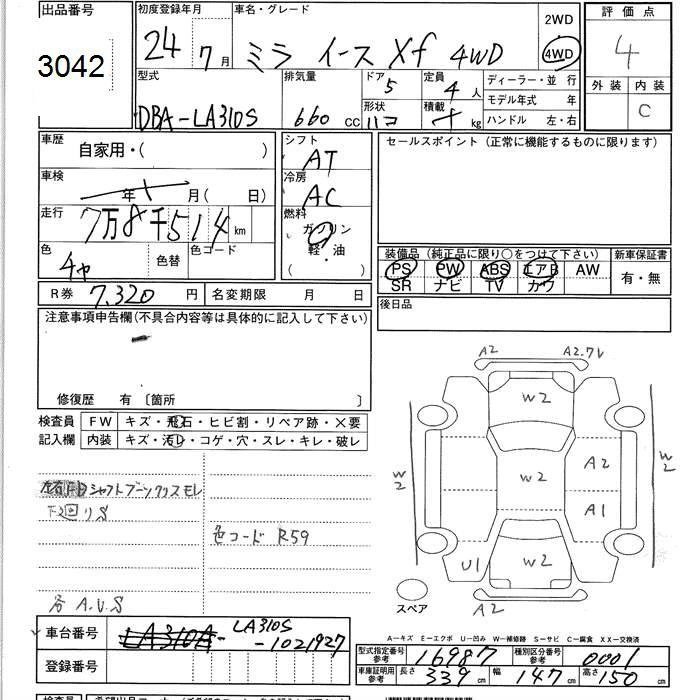 出品番号
3042
初度登録年月
24年7月
車名・グレード
ミラ イース Xf 4WD
2WD
4WD
評価点
4
外装 内装
C
型式
DBA-LA310S
排気量
660 CC
ドア
5
形状
ハコ
定員
4人
積載
kg
ディーラー・並行
モデル年式 年
ハンドル 左・右
車歴
自家用・( )
車検
年 月( 日)
走行
7万8千514km
色
チャ
色替
色コード
シフト
AT
冷房
AC
燃料
ガソリン
軽・油
( )
セールスポイント(正常に機能するものに限ります)
装備品(純正品に限り○をつけて下さい)
PS PW ABS エアB AW
SR ナビ TV カワ
新車保証書
有・無
R券 7,320円
名変期限 月 日
後日品
注意事項申告欄(不具合内容等は具体的に記入して下さい)
修復歴 有〔箇所 〕
検査員
記入欄
FW キズ・飛石・ヒビ割・リペア跡・×要
内装 キズ・汚レ・コゲ・穴・スレ・キレ・破レ
シャフトブーツグリスモレ
下回りS
色コード R59
各A.U.S
A2 A2.71
W2
W2
W2
A2
W2
A1
U1
W2
A2
スペア
A-キズ E-エクボ U-凹み W-補修跡 S-サビ C-腐食 XX-交換済
車台番号 LA310A- LA310S-1021927
登録番号
型式指定番号
参考
16987
種別区分番号
参考
0001
車庫証明用
参考
長さ 339 幅 147 高さ 150
cm cm cm